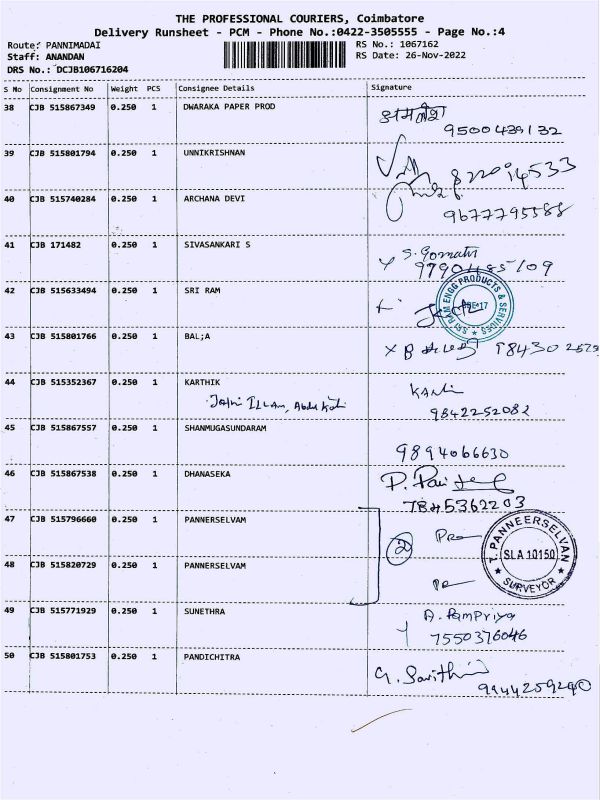 THE PROFESSIONAL COURIERS, Coimbatore
Delivery Runsheet - PCM - Phone No.:0422-3505555 - Page No.:4
Route: PANNIMADAI RS No.: 1067162
Staff: ANANDAN RS Date: 26-Nov-2022
DRS No.: DCJB106716204
S No Consignment No Weight PCS Consignee Details Signature
38 CJB 515867349 0.250 1 DWARAKA PAPER PROD
9500439132
39 CJB 515801794 0.250 1 UNNIKRISHNAN
40 CJB 515740284 0.250 1 ARCHANA DEVI
9677795588
41 CJB 171482 0.250 1 SIVASANKARI S S. Gomathi
9790485109
42 CJB 515633494 0.250 1 SRI RAM
SRI RAM ENGG PRODUCTS & SERVICES
43 CJB 515801766 0.250 1 BAL;A
44 CJB 515352367 0.250 1 KARTHIK
9842252082
45 CJB 515867557 0.250 1 SHANMUGASUNDARAM
9894066630
46 CJB 515867538 0.250 1 DHANASEKA
7845362203
47 CJB 515796660 0.250 1 PANNERSELVAM
2
T. PANNEERSELVAN
SLA 10150
SURVEYOR
48 CJB 515820729 0.250 1 PANNERSELVAM
49 CJB 515771929 0.250 1 SUNETHRA A. Pampriya
7550376046
50 CJB 515801753 0.250 1 PANDICHITRA
9944259290